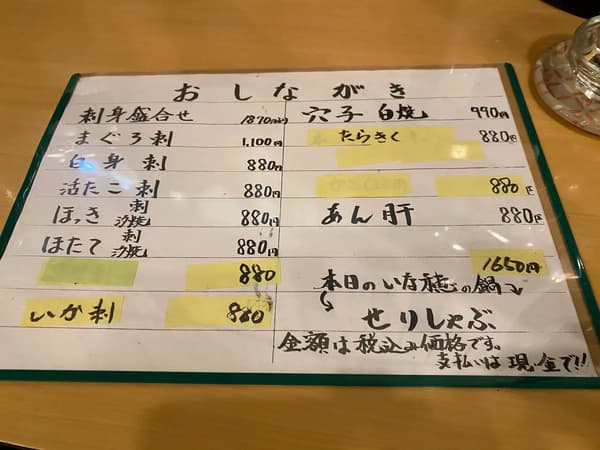 おしながき
刺身盛合せ 1870円
まぐろ刺 1,100円
白身刺 880円
活たこ刺 880円
ほっき 刺 沙焼 880円
ほたて 刺 沙焼 880円
880
いか刺 880
穴子白焼 990円
たらきく 880円
880円
あん肝 880円
1650円
本日のいな穂の鍋
せりしゃぶ
金額は税込み価格です。
支払いは現金で!!